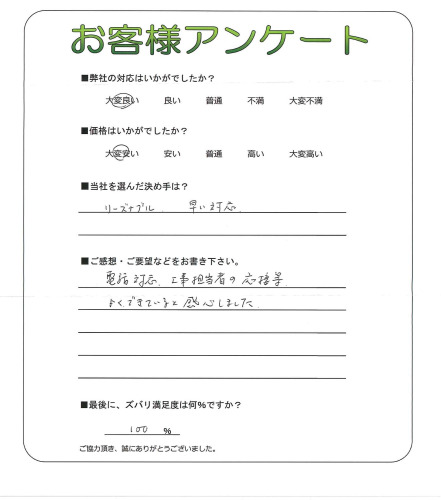 お客様アンケート
■弊社の対応はいかがでしたか？
大変良い 良い 普通 不満 大変不満
■価格はいかがでしたか？
大変安い 安い 普通 高い 大変高い
■当社を選んだ決め手は？
リーズナブル 早い対応
■ご感想・ご要望などをお書き下さい。
電話対応、工事担当者の応接等
よくできていると感心しました
■最後に、ズバリ満足度は何%ですか？
100 %
ご協力頂き、誠にありがとうございました。